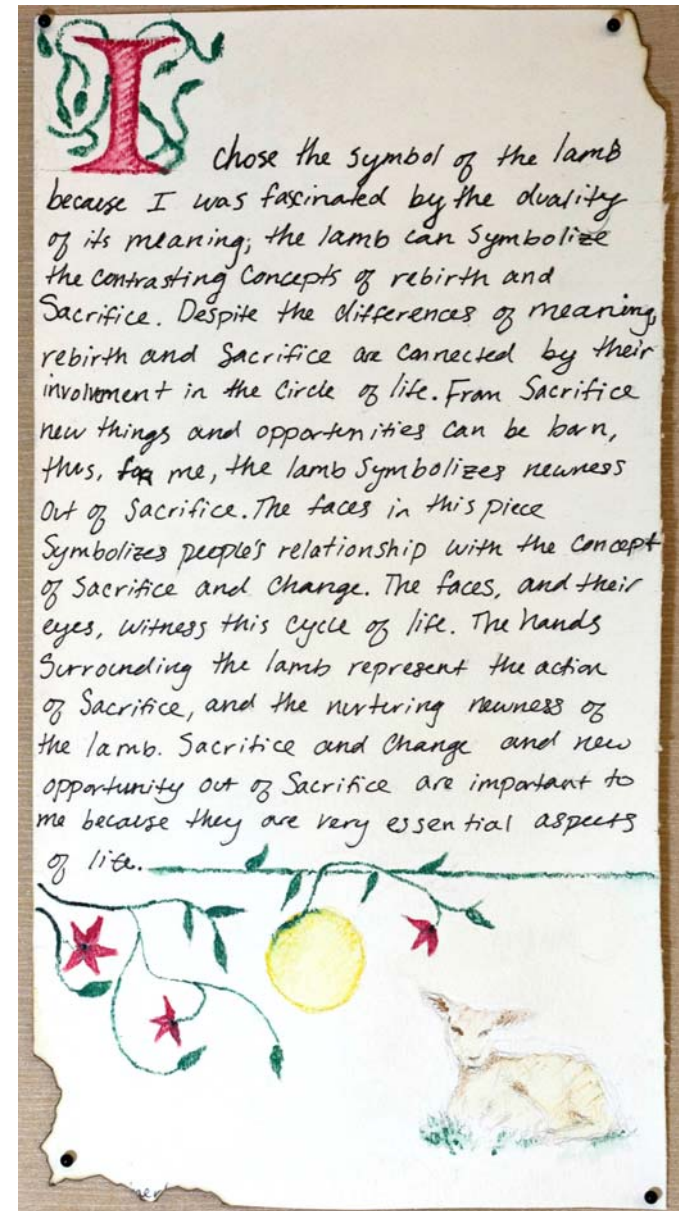 I chose the symbol of the lamb
because I was fascinated by the duality
of its meaning; the lamb can symbolize
the contrasting concepts of rebirth and
Sacrifice. Despite the differences of meaning,
rebirth and Sacrifice are connected by their
involvment in the circle of life. From Sacrifice
new things and opportunities can be born,
thus, for me, the lamb Symbolizes newness
out of Sacrifice. The faces in this piece
Symbolizes people's relationship with the concept
of Sacrifice and Change. The faces, and their
eyes, witness this cycle of life. The hands
Surrounding the lamb represent the action
of Sacrifice, and the nurturing newness of
the lamb. Sacrifice and Change and new
opportunity out of Sacrifice are important to
me because they are very essential aspects
of life.